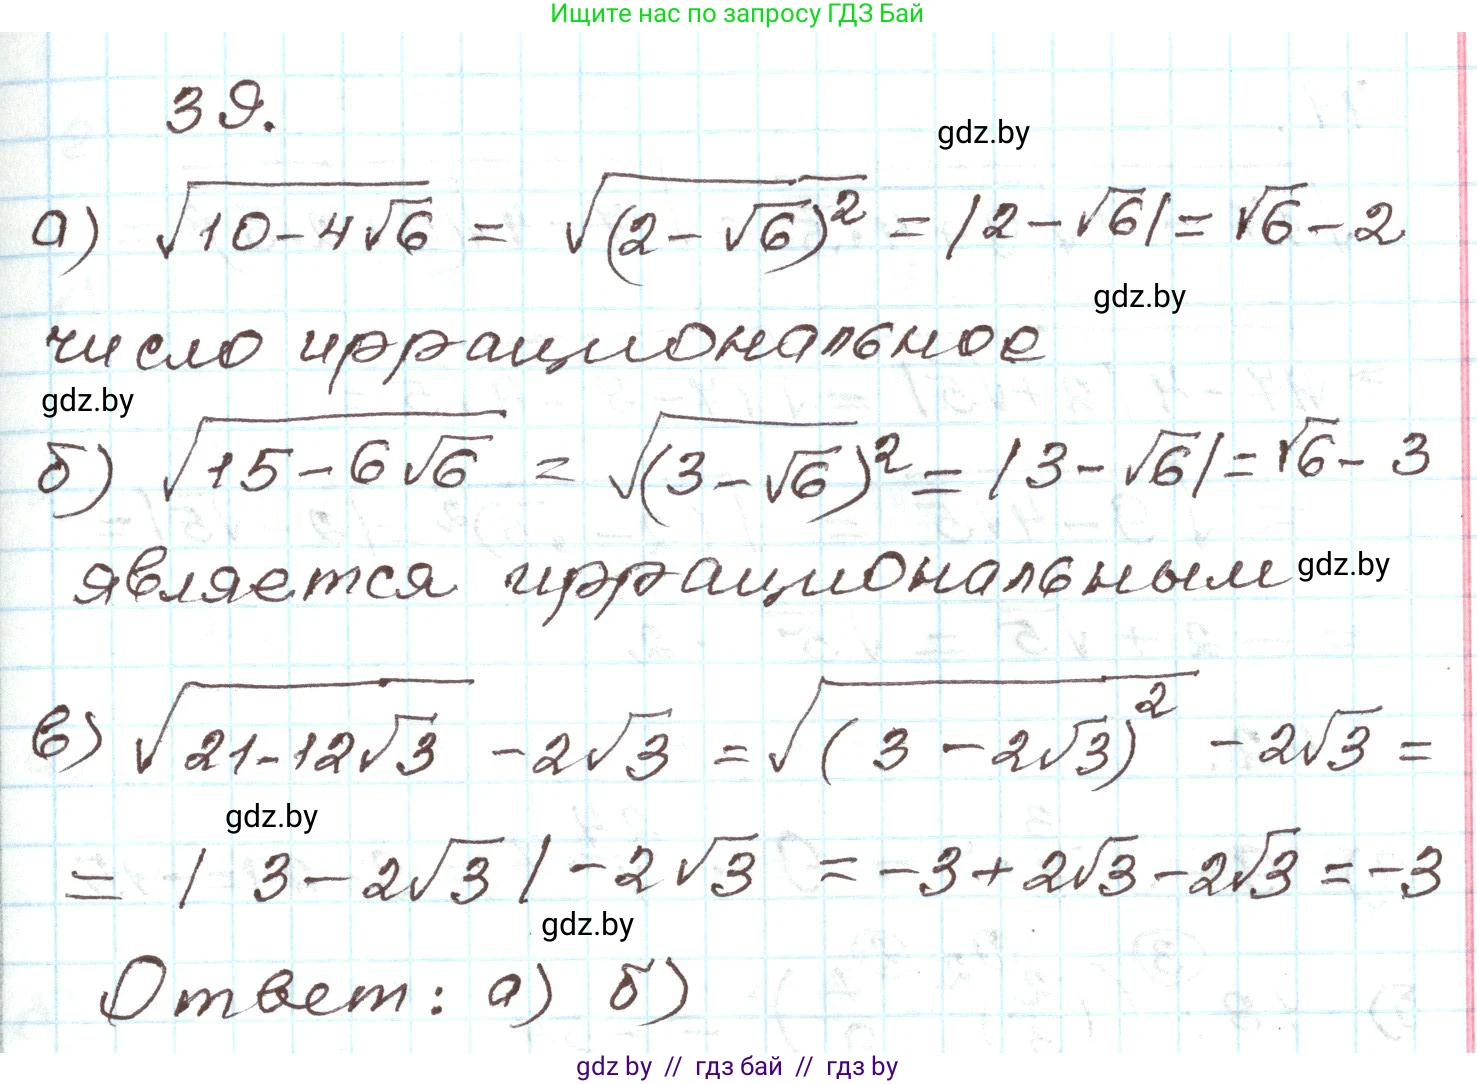 Ищите нас по запросу ГДЗ Бай
39.
gdz.by
а) √(10-4√6) = √((2-√6)²) = |2-√6| = √6-2
gdz.by
число иррациональное
gdz.by
б) √(15-6√6) = √((3-√6)²) = |3-√6| = √6-3
является иррациональным gdz.by
в) √(21-12√3) -2√3 = √((3-2√3)²) -2√3 =
gdz.by
= |3-2√3| -2√3 = -3+2√3-2√3 = -3
gdz.by
Ответ: а) б)
gdz.by // гдз бай // гдз by